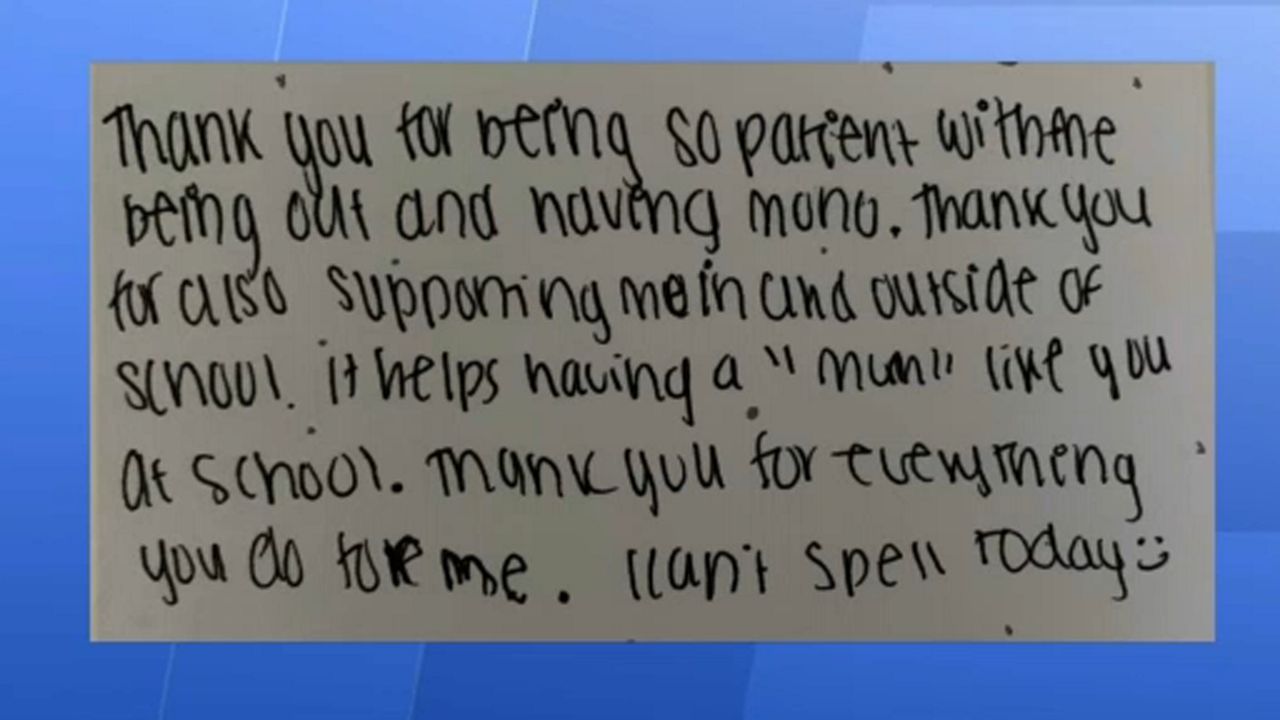 Thank you for being so patient with me
being out and having mono. Thank you
for also supporting me in and outside of
school. it helps having a "mum" like you
at school. Thank you for everything
you do fore me. I can't spell today :)